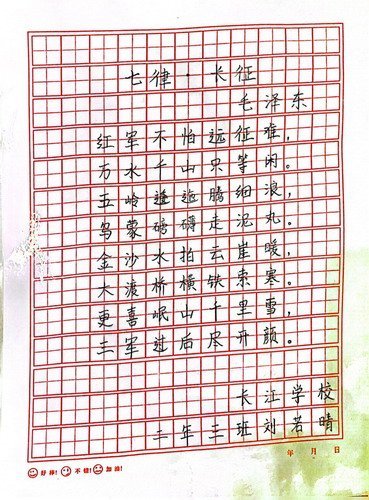 七律·长征
毛泽东
红军不怕远征难，
万水千山只等闲。
五岭逶迤腾细浪，
乌蒙磅礴走泥丸。
金沙水拍云崖暖，
大渡桥横铁索寒。
更喜岷山千里雪，
三军过后尽开颜。
长江学校
二年三班刘若晴
年 月 日
好棒! 不错! 加油!